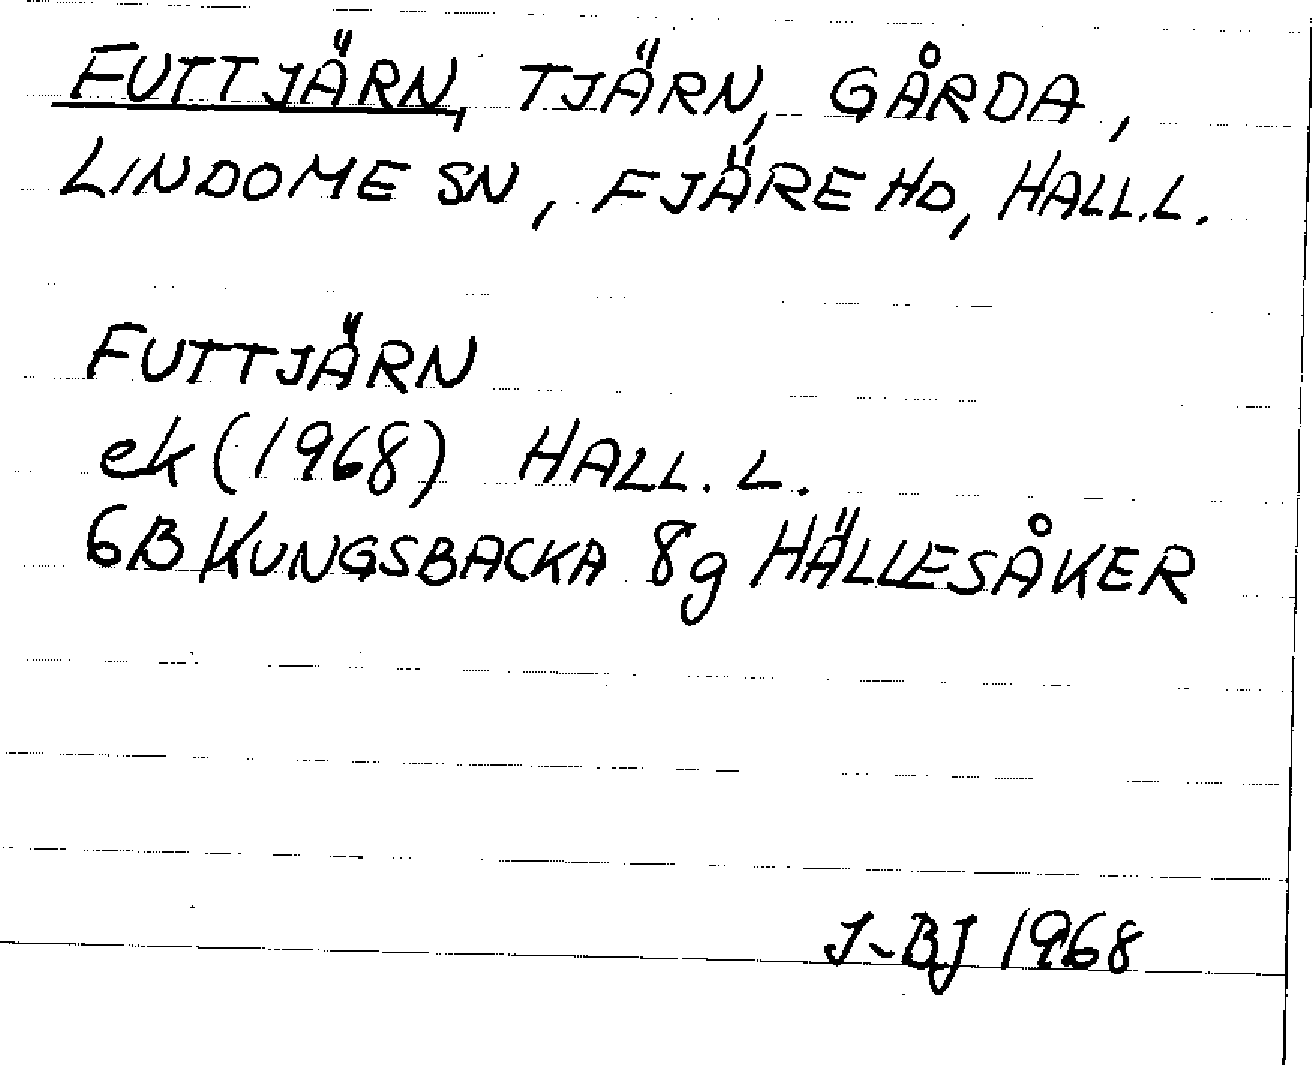 FUTTJÄRN, TJÄRN, GÅRDA,
LINDOME SN, FJÄRE HD, HALL.L.
FUTTJÄRN
ek (1968) HALL. L.
6B KUNGSBACKA 8g HÄLLESÅKER
J-BJ 1968